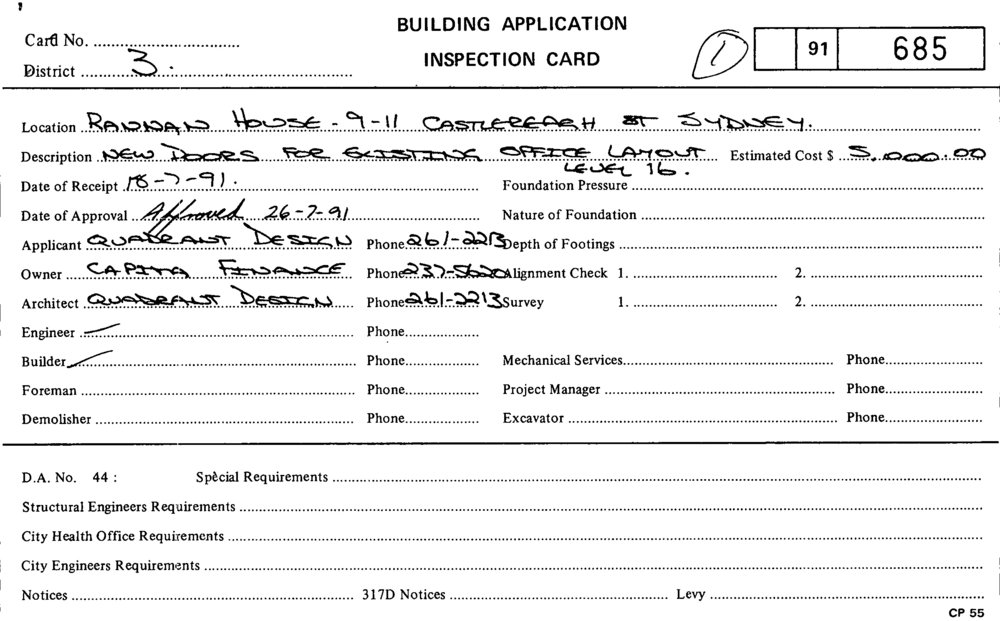 BUILDING APPLICATION
INSPECTION CARD
Card No.
District 3.
1
91 685
Location RANNAN HOUSE - 9-11 CASTLEREAGH ST SYDNEY.
Description NEW DOORS FOR EXISTING OFFICE LAYOUT Estimated Cost $ 5,000.00
LEVEL 16.
Date of Receipt 18-7-91. Foundation Pressure
Date of Approval Approved 26-7-91 Nature of Foundation
Applicant QUADRANT DESIGN Phone 261-2213 Depth of Footings
Owner CAPITA FINANCE Phone 237-5620 Alignment Check 1. 2.
Architect QUADRANT DESIGN Phone 261-2213 Survey 1. 2.
Engineer Phone
Builder Phone Mechanical Services Phone
Foreman Phone Project Manager Phone
Demolisher Phone Excavator Phone
D.A. No. 44 : Special Requirements
Structural Engineers Requirements
City Health Office Requirements
City Engineers Requirements
Notices 317D Notices Levy
CP 55